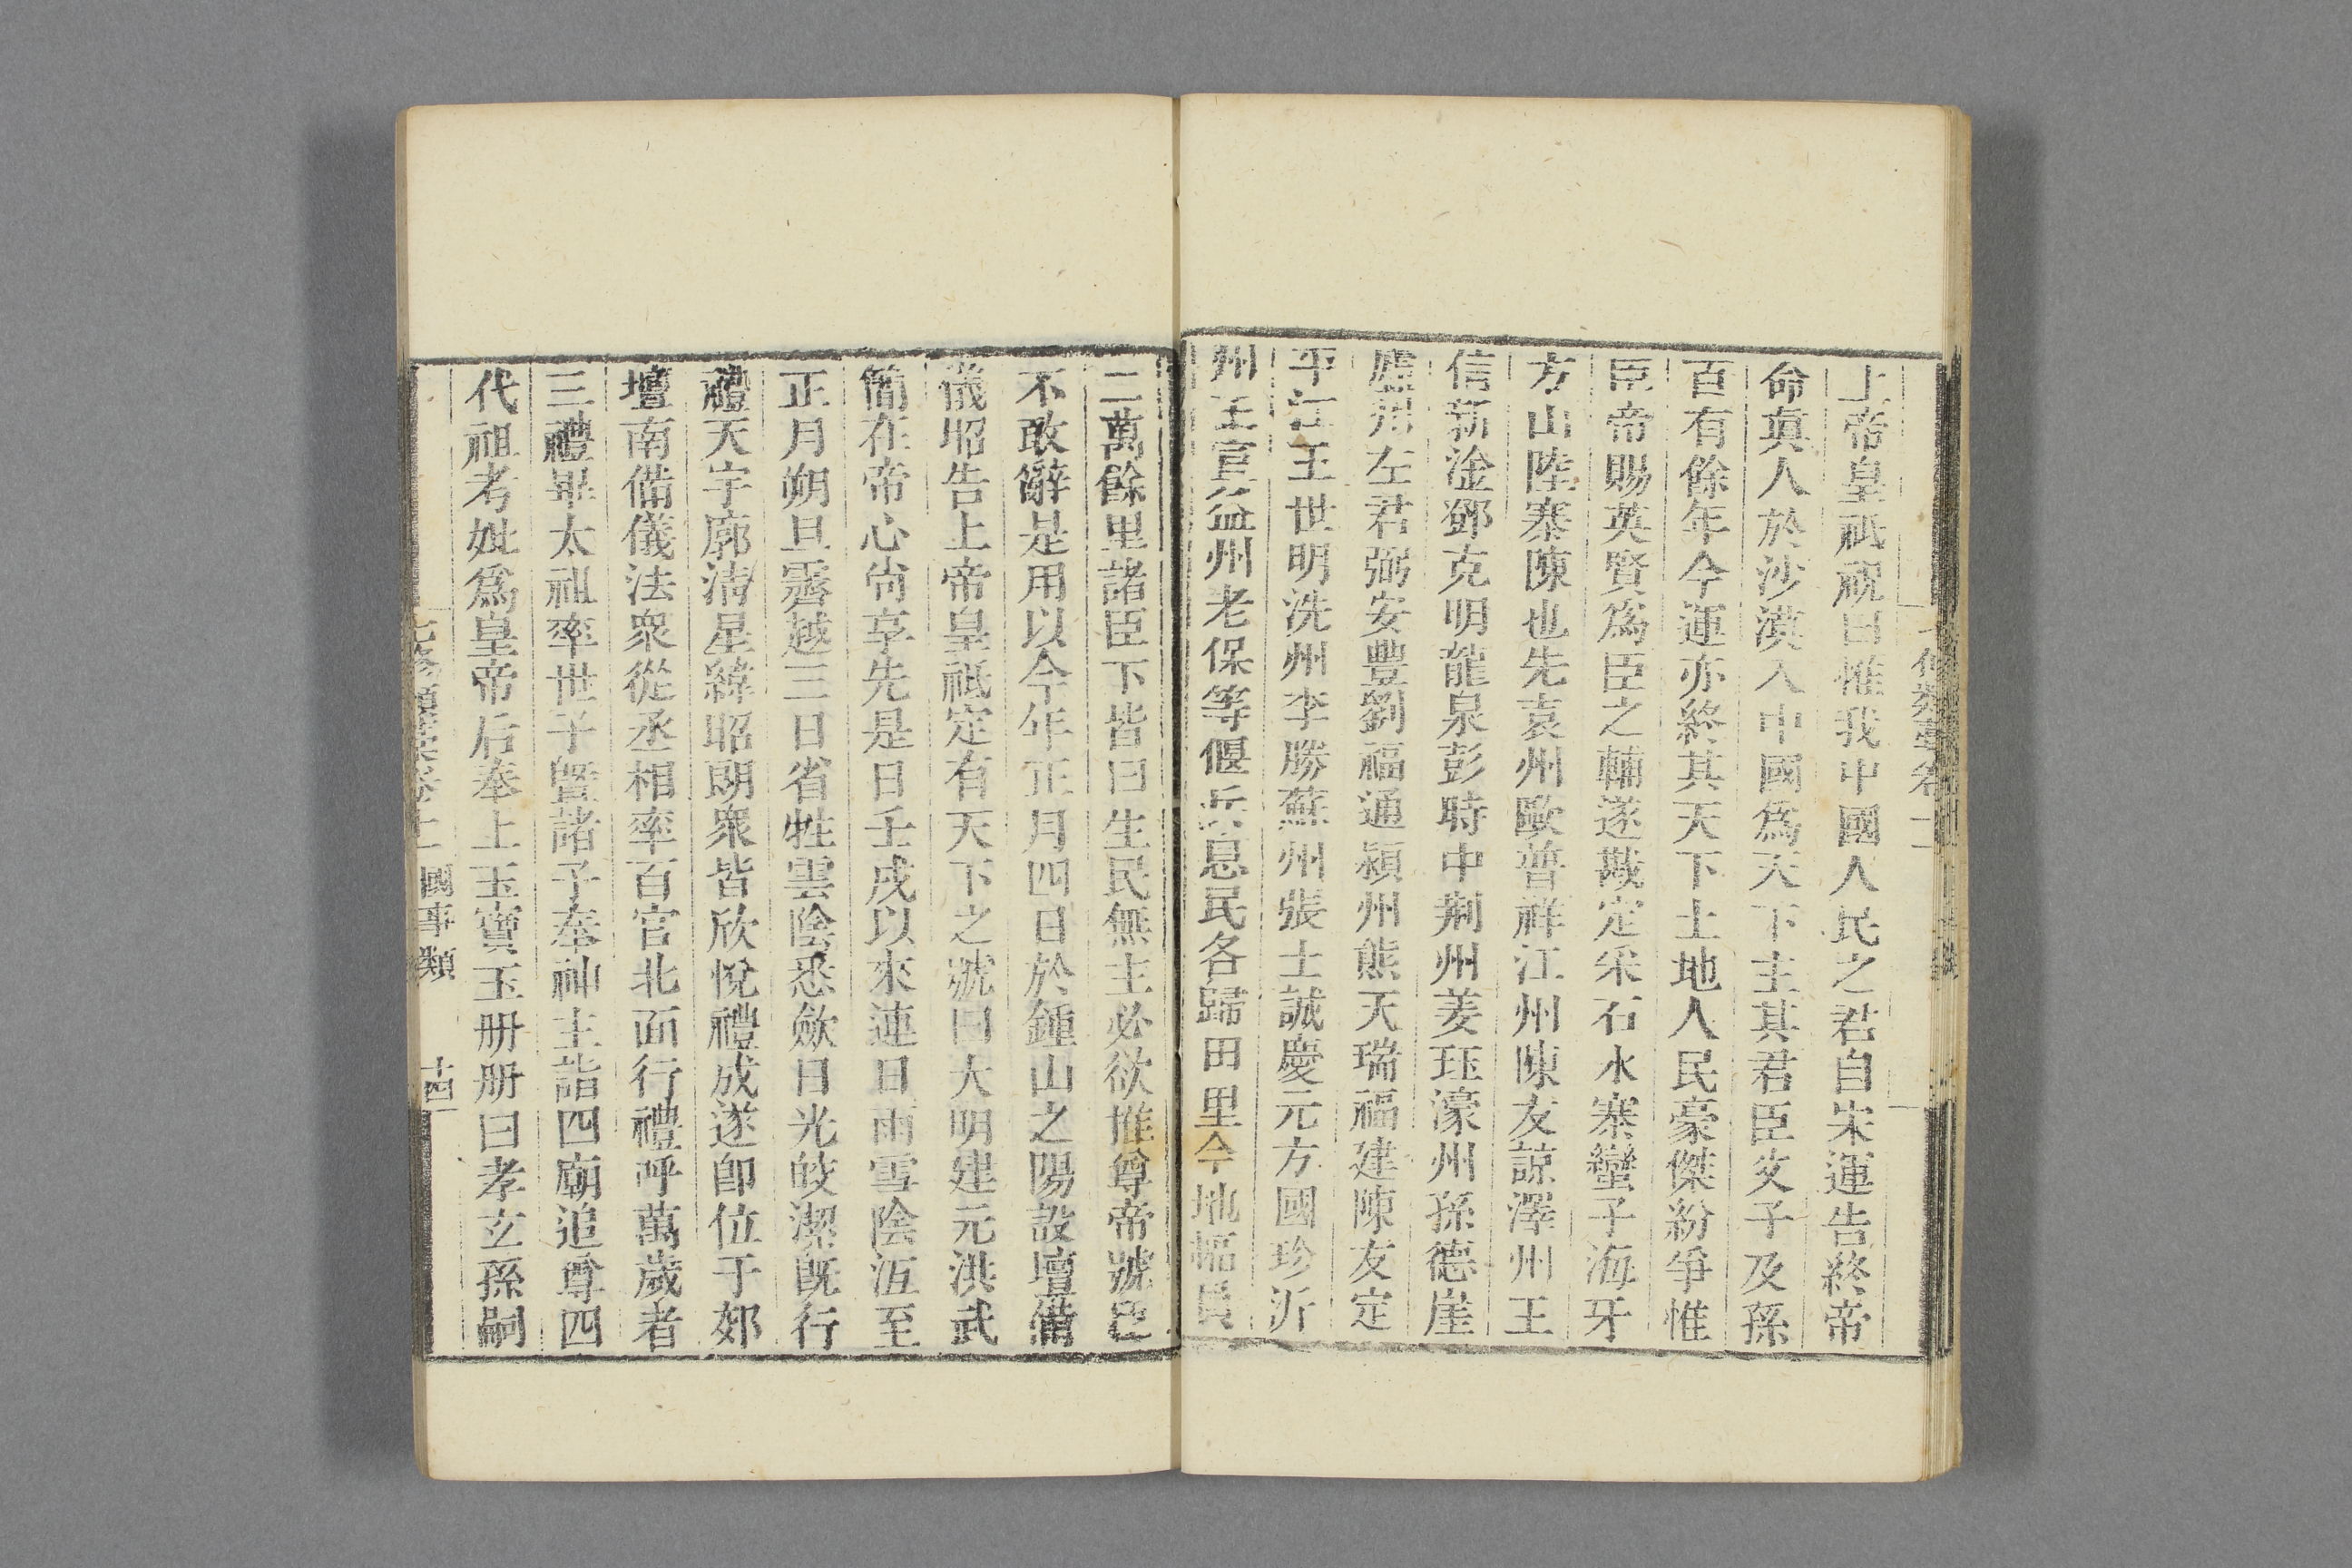 上帝皇祇祝曰惟我中國人民之君自宋運告終帝
命真人於沙漠入中國爲天下主其君臣父子及孫
百有餘年今運亦終其天下土地人民豪傑紛爭惟
臣帝賜英賢爲臣之輔遂戡定采石水寨蠻子海牙
方山陸寨陳也先袁州歐普祥江州陳友諒潭州王
信新淦鄧克明龍泉彭時中荆州姜珏濠州孫德崖
廬州左君弼安豐劉福通潁州熊天瑞福建陳友定
平江王世明洗州李勝蘇州張士誠慶元方國珍沂
州王宣益州老保等偃兵息民各歸田里今地幅員
二萬餘里諸臣下皆曰生民無主必欲推尊帝號臣
不敢辭是用以今年正月四日於鍾山之陽設壇備
儀昭告上帝皇祇定有天下之號曰大明建元洪武
簡在帝心尚享先是日壬戌以來連日雨雪陰沍至
正月朔旦霽越三日省牲雲陰悉歛日光皎潔旣行
禮天宇廓淸星緯昭朗衆皆欣悅禮成遂卽位于郊
壇南備儀法衆從丞相率百官北面行禮呼萬歲者
三禮畢太祖率世子曁諸子奉神主詣四廟追尊四
代祖考妣爲皇帝后奉上玉寶玉册册曰孝玄孫嗣
七修類藁卷十一 國事類 十四